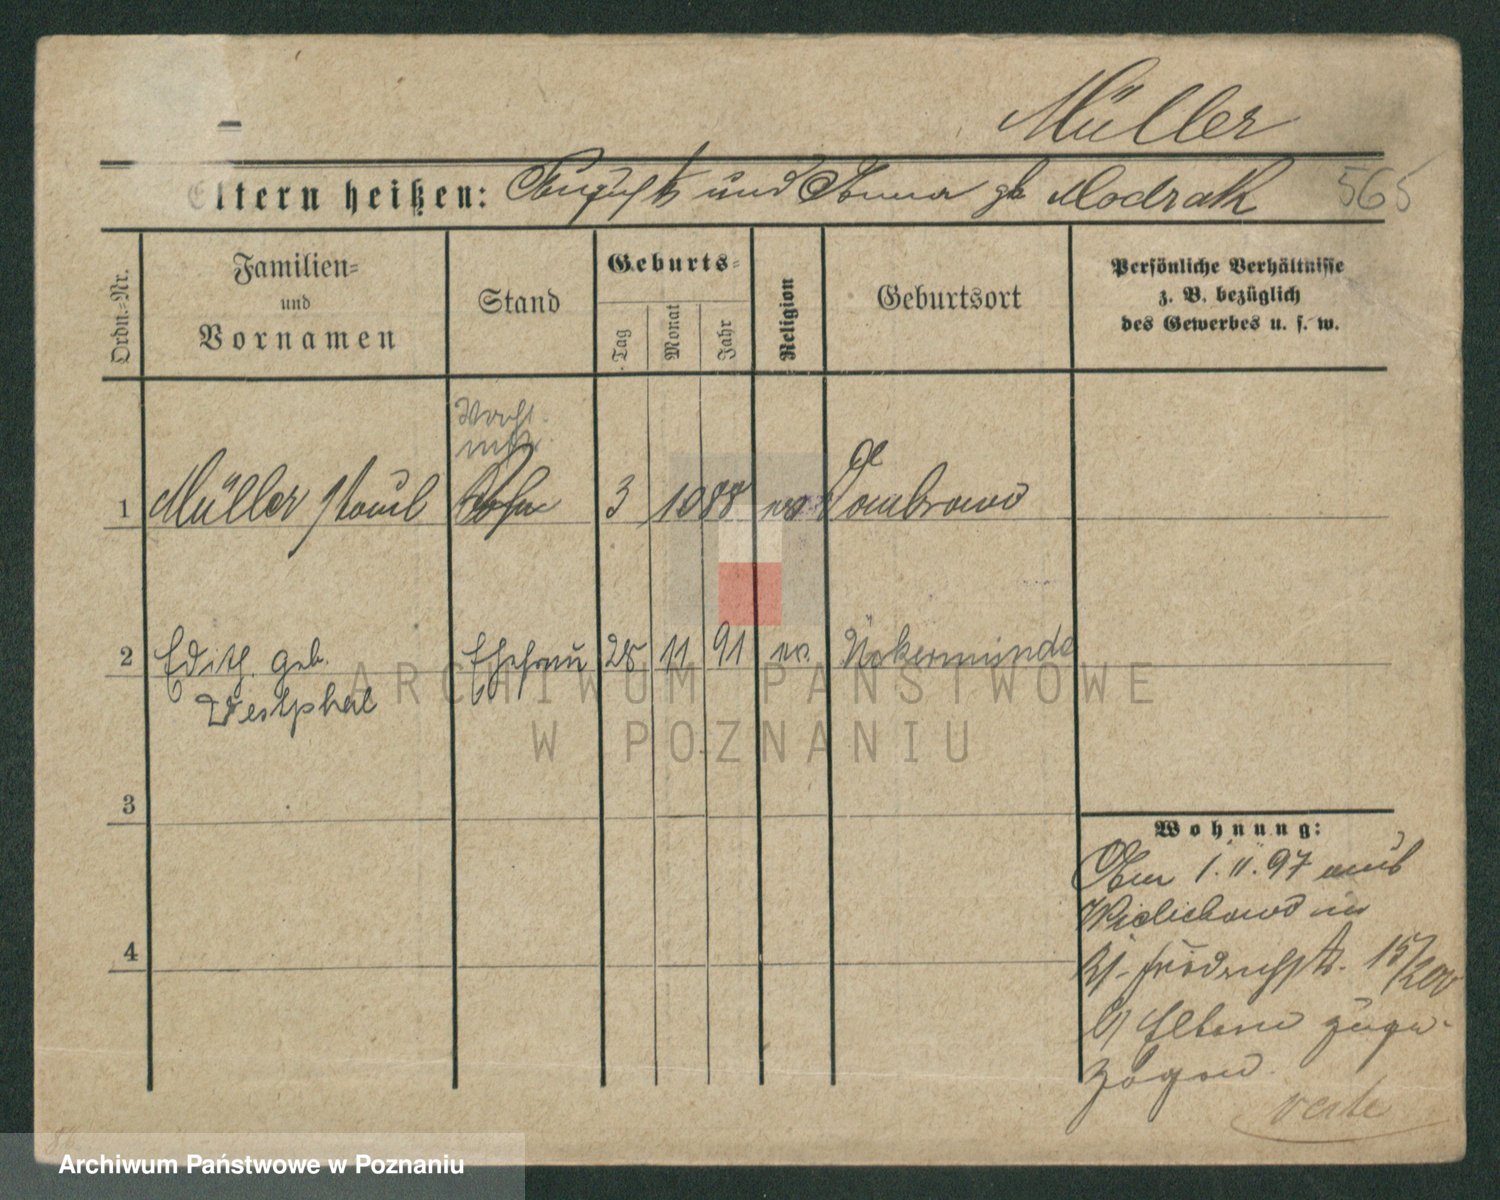 Müller
Eltern heißen: August und Anna gb Modrak 565
Ordn.-Nr.
Familien-
und
Vornamen
Stand
Geburts-
Tag
Monat
Jahr
Religion
Geburtsort
Persönliche Verhältnisse
z. B. bezüglich
des Gewerbes u. s. w.
1 Müller Paul Sohn 3 10 88 ev Dombrowo
2 Edith geb. Ehefrau 28 11 91 ev. Ückermünde
Westphal
3
4
Wohnung:
Am 1.11.97 aus
in
Friedrichstr. 15/200
Eltern zuge-
zogen.
verte
ARCHIWUM PAŃSTWOWE
W POZNANIU
Archiwum Państwowe w Poznaniu